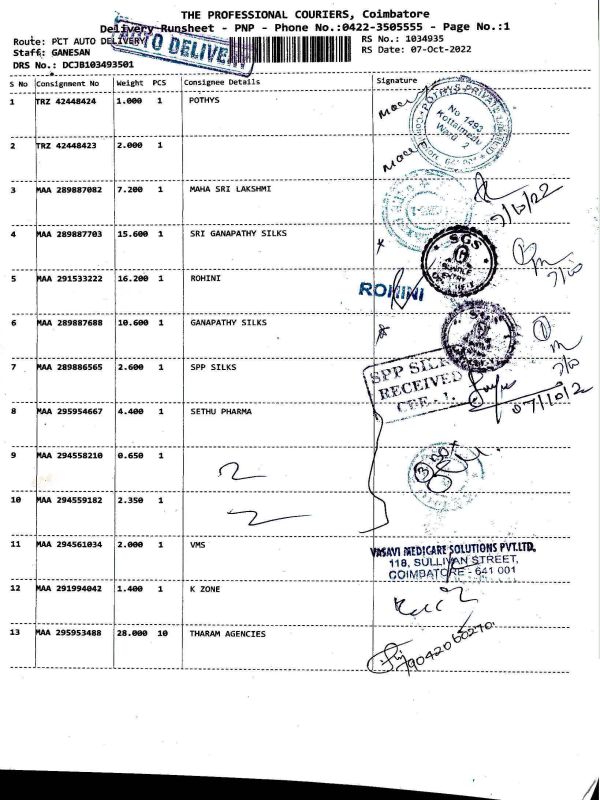 THE PROFESSIONAL COURIERS, Coimbatore
Delivery Runsheet - PNP - Phone No.:0422-3505555 - Page No.:1
Route: PCT AUTO DELIVERY
AUTO DELIVERY
RS No.: 1034935
Staff: GANESAN
RS Date: 07-Oct-2022
DRS No.: DCJB103493501
S No Consignment No Weight PCS Consignee Details Signature
1 TRZ 42448424 1.000 1 POTHYS
POTHYS PRIVATE
No 1493
Kottaimedu
Ward 2
2 TRZ 42448423 2.000 1
3 MAA 289887082 7.200 1 MAHA SRI LAKSHMI
4 MAA 289887703 15.600 1 SRI GANAPATHY SILKS
SGS
5 MAA 291533222 16.200 1 ROHINI
ROHINI
6 MAA 289887688 10.600 1 GANAPATHY SILKS
7 MAA 289886565 2.600 1 SPP SILKS
SPP SILK
RECEIVED
CBE - 1.
07/10/2
8 MAA 295954667 4.400 1 SETHU PHARMA
9 MAA 294558210 0.650 1
3 BOX
10 MAA 294559182 2.350 1
11 MAA 294561034 2.000 1 VMS
VASAVI MEDICARE SOLUTIONS PVT.LTD,
118, SULLIVAN STREET,
COIMBATORE - 641 001
12 MAA 291994042 1.400 1 K ZONE
13 MAA 295953488 28.000 10 THARAM AGENCIES
79042060270